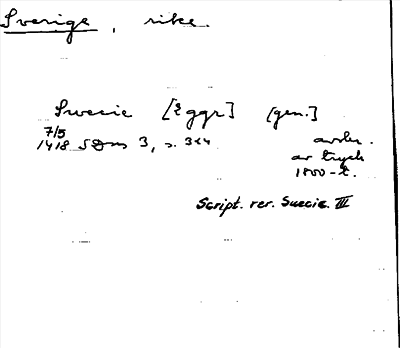 Sverige, rike.
Swecie [Eggr] [gen.]
7/5
1418 SDns 3, s. 324
avskr.
av tryck
1800-t.
Script. rer. Suecic. III